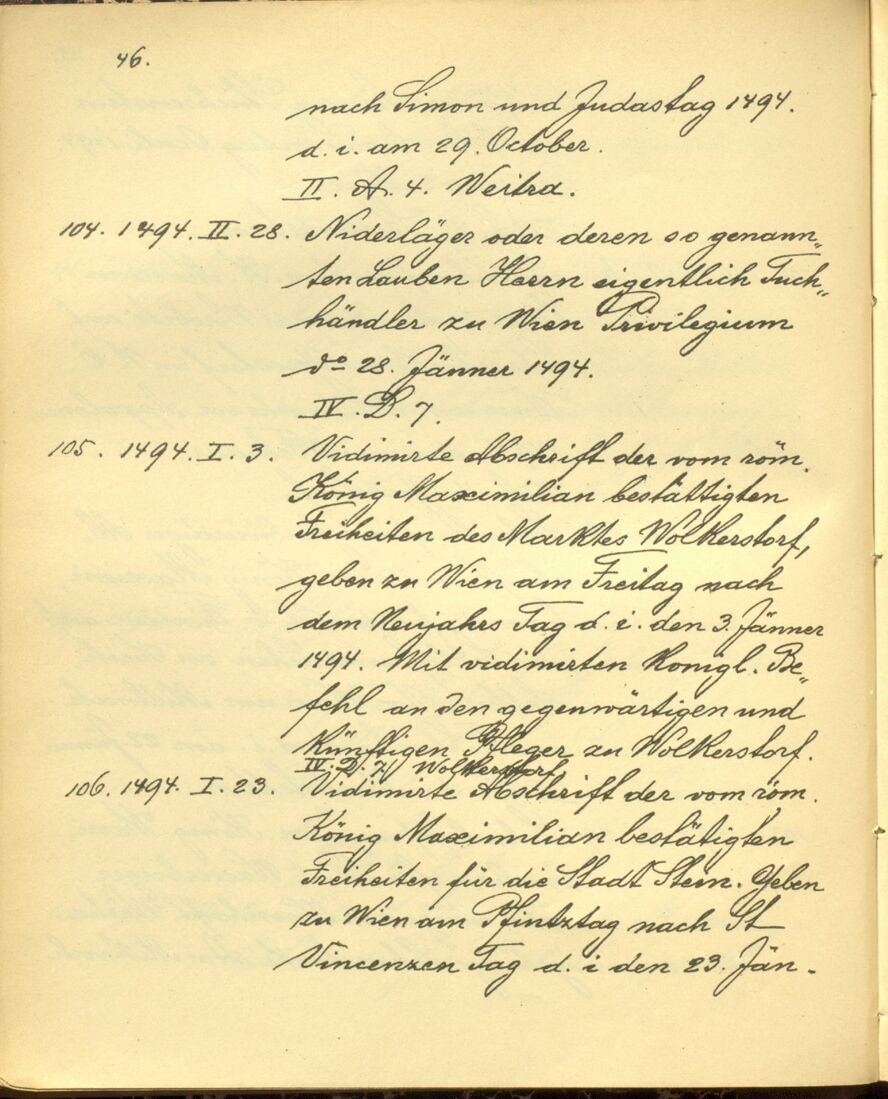 46.
nach Simon und Judastag 1494.
d. i. am 29. October.
II. A. 4. Weitra.
104. 1494. II. 28. Niderläger oder deren so genann„
ten Lauben Herrn eigentlich Tuch„
händler zu Wien Privilegium
do 28. Jänner 1494.
IV. D. 7.
105. 1494. I. 3. Vidimirte Abschrift der vom röm.
König Maximilian bestättigten
Freiheiten des Marktes Wolkerstorf,
geben zu Wien am Freitag nach
dem Neujahrs Tag d. i. den 3. Jänner
1494. Mit vidimirten Konigl. Be„
fehl an den gegenwärtigen und
künftigen Pfleger zu Wolkerstorf.
IV. D. 7/ Wolkerstorf
106. 1494. I. 23. Vidimirte Abschrift der vom röm.
König Maximilian bestätigten
Freiheiten für die Stadt Stein. Geben
zu Wien am Pfintztag nach St
Vincenzen Tag d. i den 23. Jän-